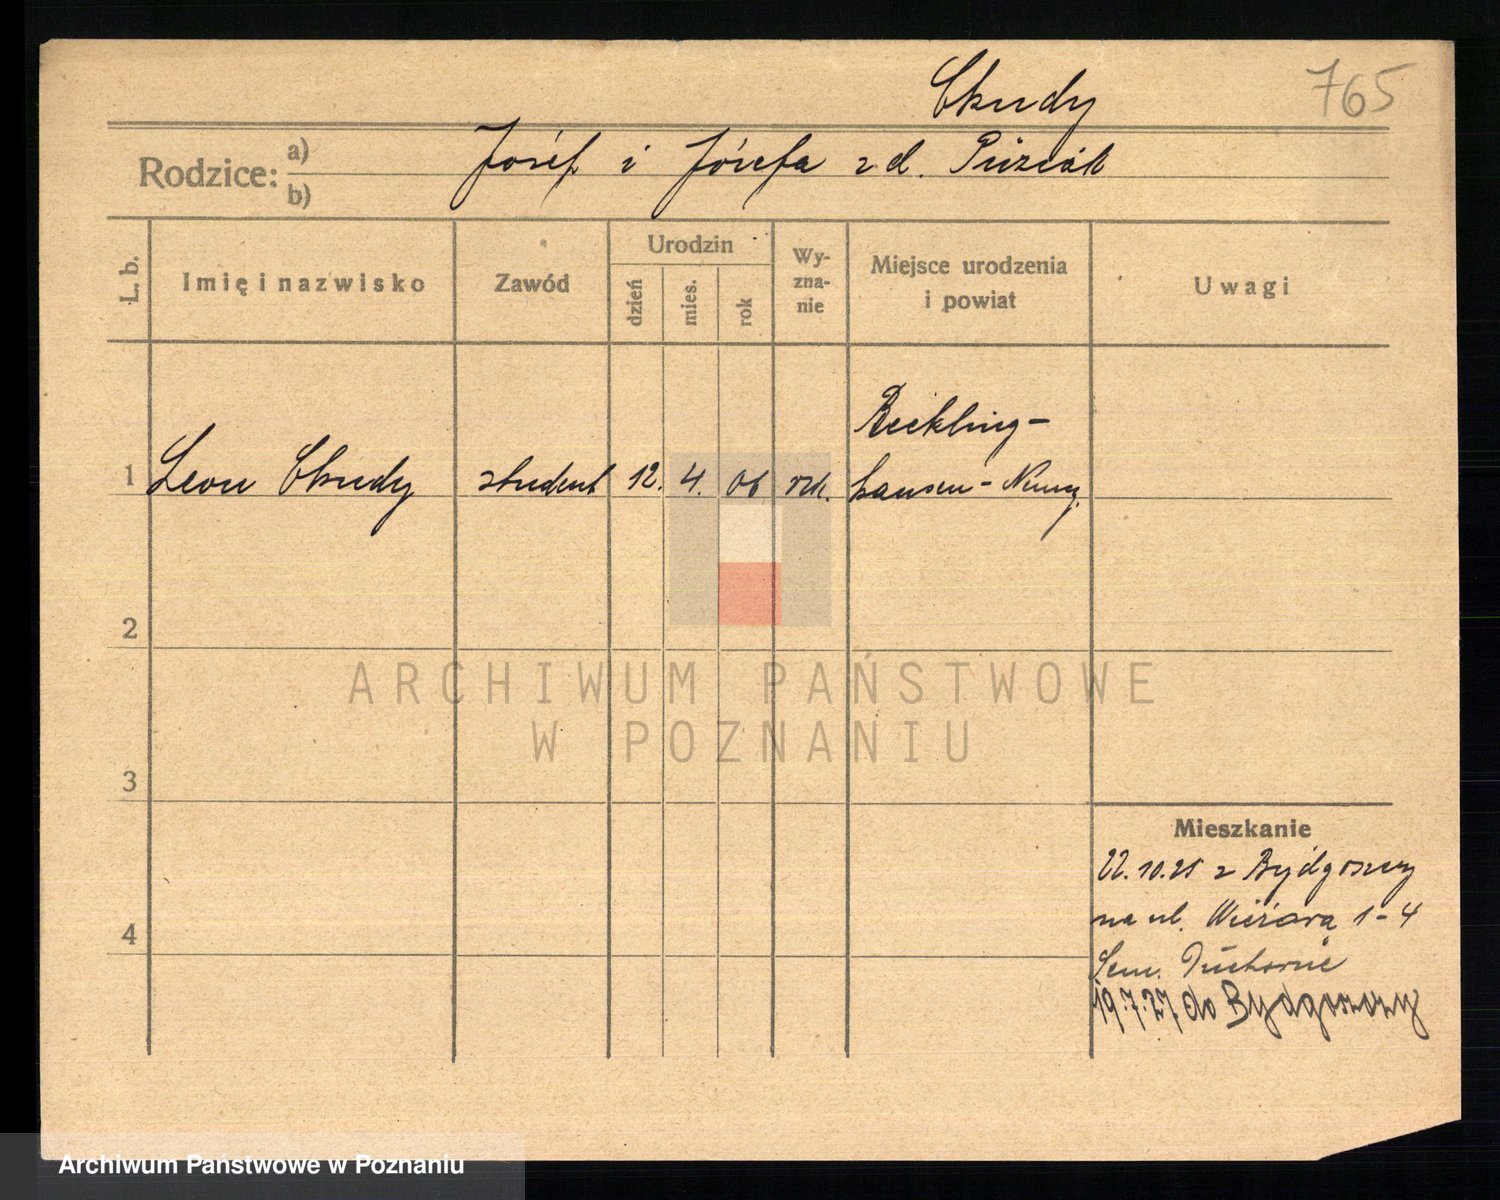 765
Chudy
Rodzice: a) b)
Józef i Józefa zd. Puziak
L. b.
Imię i nazwisko
Zawód
Urodzin
dzień
mies.
rok
Wy-
zna-
nie
Miejsce urodzenia
i powiat
Uwagi
1 Leon Chudy student 12. 4. 06 rzk. Reckling-
hausen - Niemcy.
2
3
4
Mieszkanie
22.10.25 z Bydgoszczy
na ul. Wieżową 1-4
Sem. Duchowne
19.7.27 do Bydgoszczy
ARCHIWUM PAŃSTWOWE
W POZNANIU
Archiwum Państwowe w Poznaniu